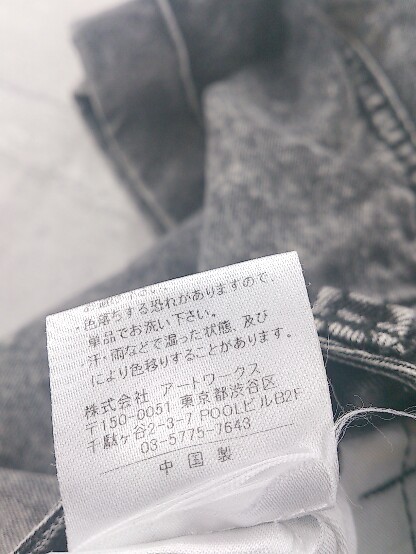 ・色落ちする恐れがありますので、
単品でお洗い下さい。
・汗・雨などで湿った状態、及び
により色移りすることがあります。
株式会社 アートワークス
〒150-0051 東京都渋谷区
千駄ケ谷2-3-7 POOLビルB2F
03-5775-7643
中国製